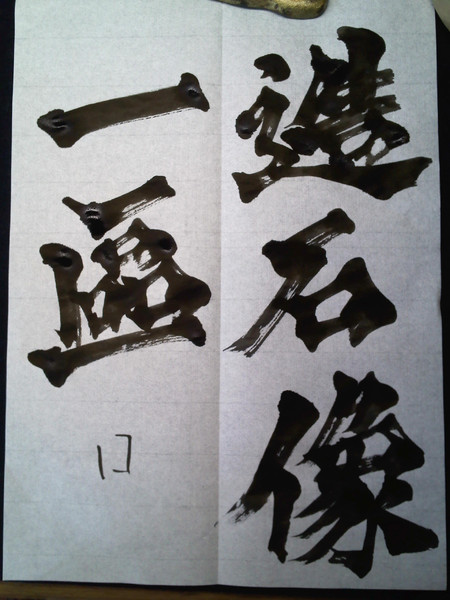 造石像
一區